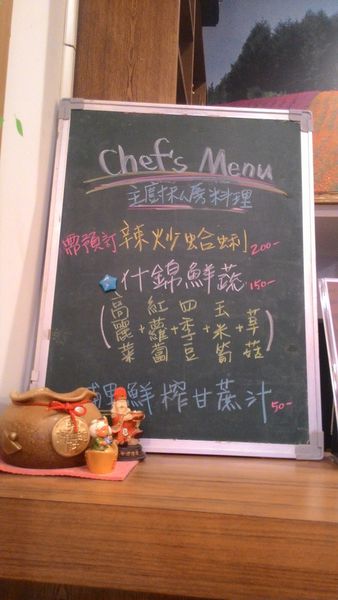 Chef's Menu
主廚私房料理
需預訂 辣炒蛤蜊 200-
什錦鮮蔬 150-
(高麗菜+紅蘿蔔+四季豆+玉米筍+草菇)
埔里鮮榨甘蔗汁 50-